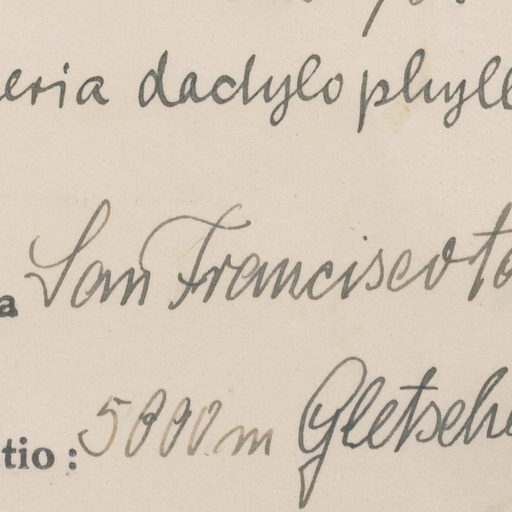 eria dactylophyll
a San Francisco ta
tio : 5000 m Gletsche